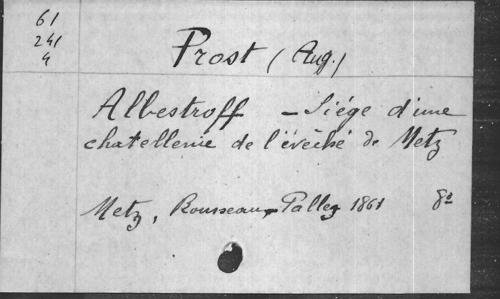 61
241
4
Prost (Aug.)
Albestroff - Siége d'une
chatellenie de l'évêché de Metz
Metz, Rousseau-Pallez 1861 8º